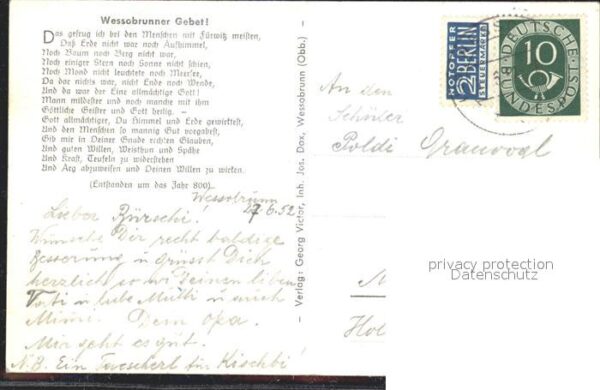 Wessobrunner Gebet!
Das gefrug ich bei den Menschen mit Fürwitz meisten,
Daß Erde nicht war noch Aufhimmel,
Noch Baum noch Berg nicht war,
Noch einiger Stern noch Sonne nicht schien,
Noch Mond nicht leuchtete noch Meersee,
Da dar nichts war, nicht Ende noch Wende,
Und da war der Eine allmächtige Gott!
Mann mildester und noch manche mit ihm
Göttliche Geister und Gott heilig. —
Gott allmächtiger, Du Himmel und Erde gewirktest,
Und den Menschen so mannig Gut vorgabest,
Gib mir in Deiner Gnade rechten Glauben,
Und guten Willen, Weisthun und Spähe
Und Kraft, Teufeln zu widerstehen
Und Arg abzuweisen und Deinen Willen zu wirken.
(Entstanden um das Jahr 800).
Wessobrunn
27.6.52
Lieber Bürschi!
Wünsche Dir recht baldige
Besserung u grüsst Dich
herzlich so wi Deinen lieben
u liebe Mutti u auch
Mimi. Dein Opa.
Mir geht es gut.
N.B. Ein für Kischbi!
Verlag: Georg Victor, Inh. Jos. Dax, Wessobrunn (Obb.)
NOTOPFER
2 BERLIN
STEUERMARKE
DEUTSCHE
10
BUNDESPOST
An den
Schüler
Poldi Grauvogl
privacy protection
Datenschutz